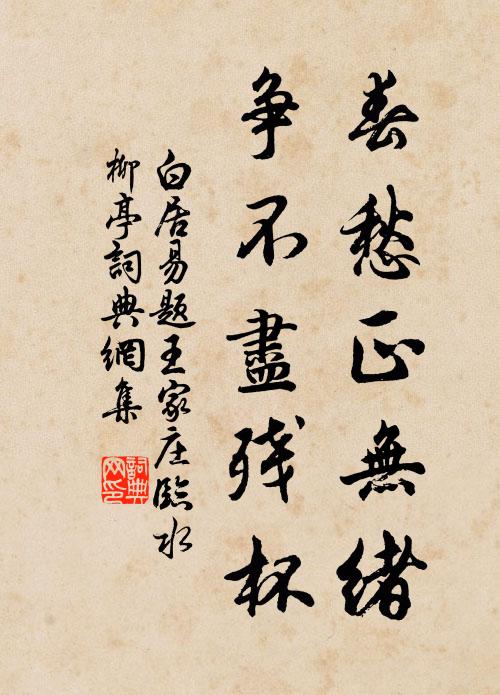 春愁正無緒
争不盡残杯
白居易题王家庄臨水
柳亭詞典網集
詞典
网印